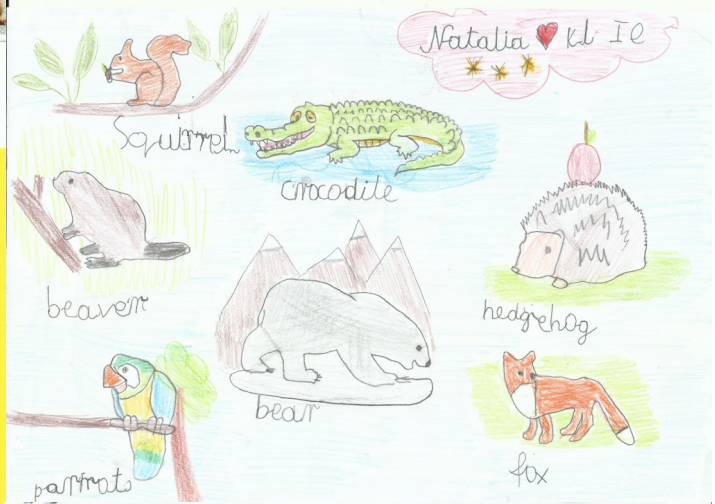 Natalia ❤ kl I C
Squirrel
crocodile
beaver
hedgiehog
bear
parrots
fox